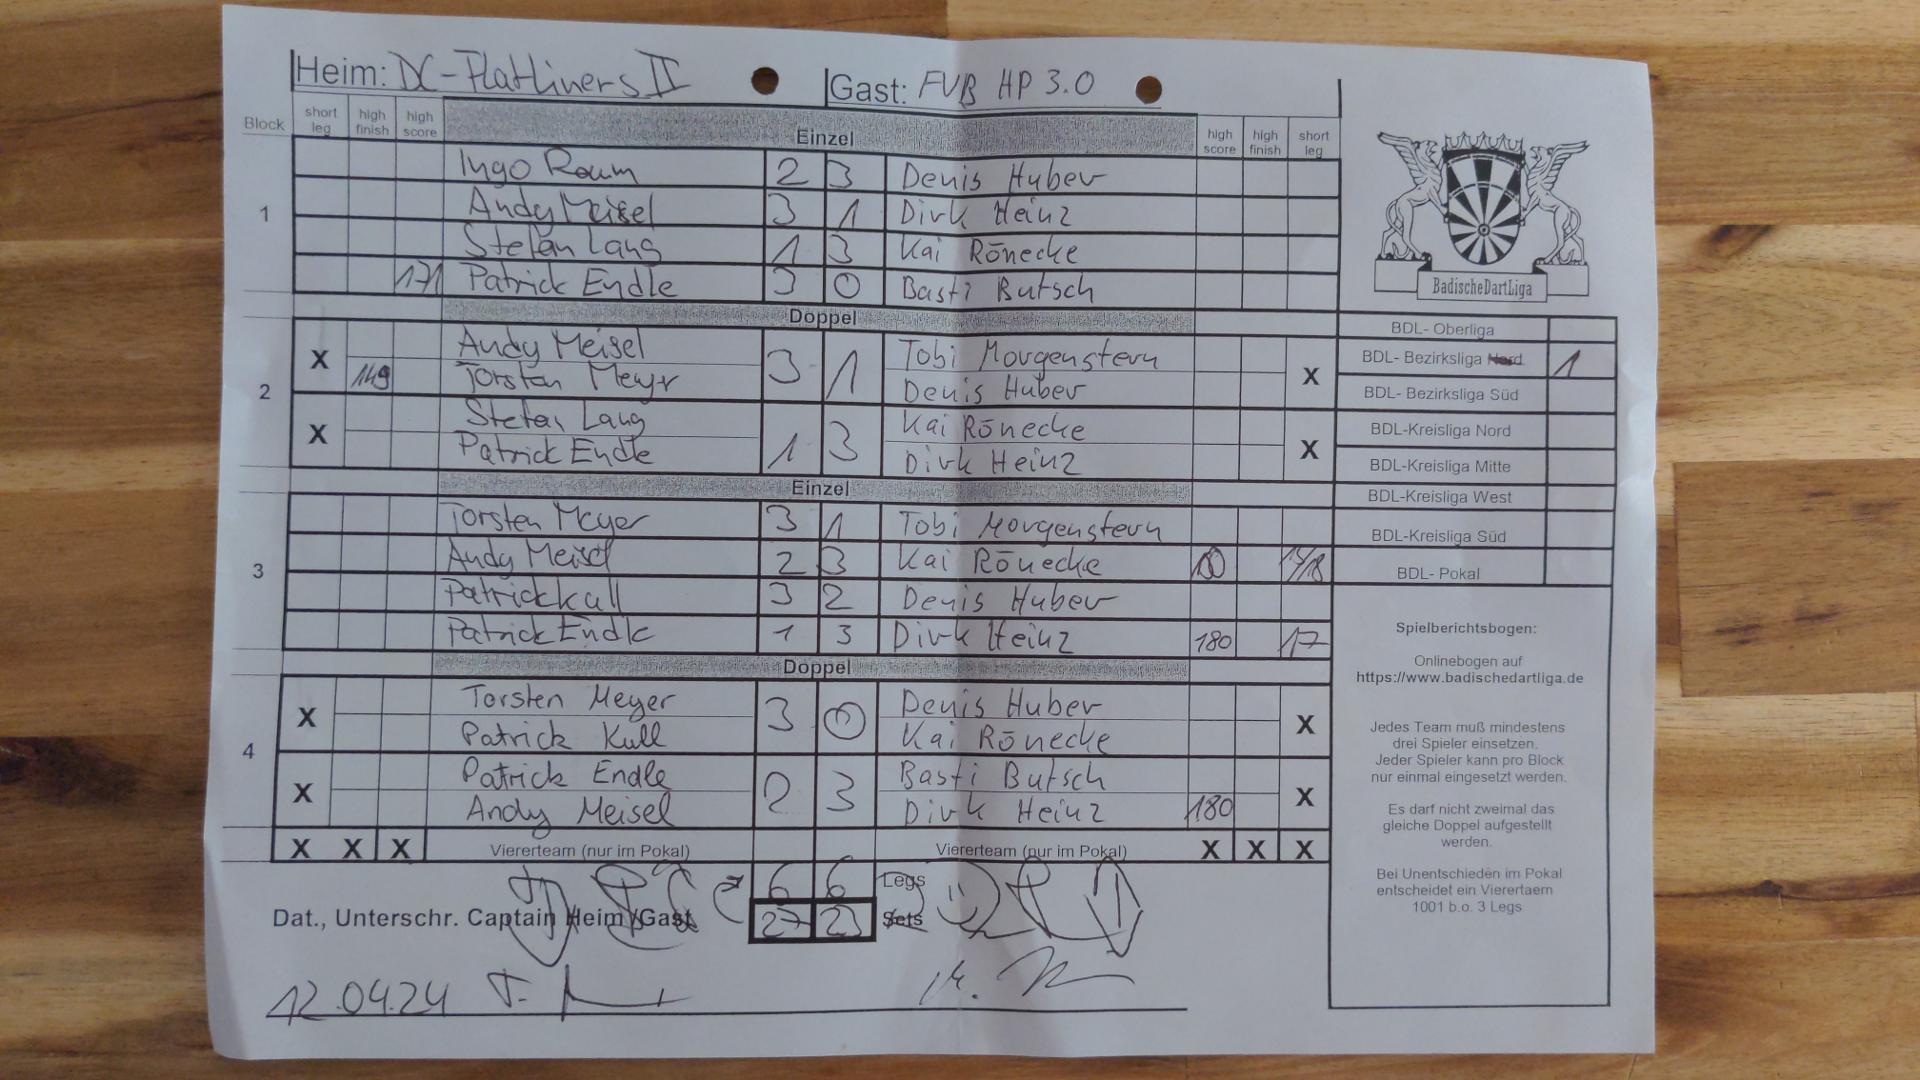 Heim: DC-Flatliners II Gast: FVB HP 3.0
Block short leg high finish high score Einzel high score high finish short leg
1
Ingo Raum 2 3 Denis Huber
Andy Meisel 3 1 Dirk Heinz
Stefan Lang 1 3 Kai Rönecke
171 Patrick Endle 3 0 Basti Butsch
Doppel
2
X Andy Meisel 3 1 Tobi Morgenstern X
149 Torsten Meyr Denis Huber
X Stefan Lang 1 3 Kai Rönecke X
Patrick Endle Dirk Heinz
Einzel
3
Torsten Meyer 3 1 Tobi Morgenstern
Andy Meisel 2 3 Kai Rönecke
Patrick Kull 3 2 Denis Huber
Patrick Endle 1 3 Dirk Heinz 180 17
Doppel
4
X Torsten Meyer 3 0 Denis Huber X
Patrick Kull Kai Rönecke
X Patrick Endle 2 3 Basti Butsch X
Andy Meisel Dirk Heinz 180
X X X Viererteam (nur im Pokal) Viererteam (nur im Pokal) X X X
6 6 Legs
Dat., Unterschr. Captain Heim/Gast 27 23 Sets
12.04.24
BadischeDartLiga
BDL- Oberliga
BDL- Bezirksliga Nord 1
BDL- Bezirksliga Süd
BDL-Kreisliga Nord
BDL-Kreisliga Mitte
BDL-Kreisliga West
BDL-Kreisliga Süd
BDL- Pokal
Spielberichtsbogen:
Onlinebogen auf
https://www.badischedartliga.de
Jedes Team muß mindestens
drei Spieler einsetzen.
Jeder Spieler kann pro Block
nur einmal eingesetzt werden.
Es darf nicht zweimal das
gleiche Doppel aufgestellt
werden.
Bei Unentschieden im Pokal
entscheidet ein Vierertaem
1001 b.o. 3 Legs